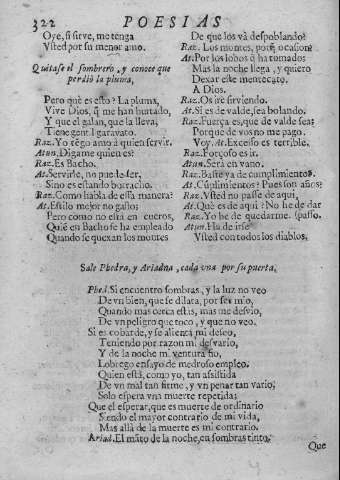 322 POESIAS
Oye, si sirve, me tenga
Vsted por su menor amo.
Quitase el sombrero, y conoce que
perdiò la pluma,
Pero què es esto? La pluma,
Vive Dios, q̃ me han hurtado,
Y que el galan, que la lleva,
Tiene gentil garavato.
Raz. Yo tẽgo amo à quien servir.
Atun. Digame quien es?
Raz. Es Bacho.
At. Servirle, no puede ser,
Sino es estando borracho.
Raz. Como habla de essa manera?
At. Estilo mejor no gallo;
Pero como no està en cueros,
Quiẽ en Bacho se ha empleado
Quando se quexan los montes
De que los và despoblando?
Raz. Los montes, porq̃ ocasion?
At. Por los lobos q̃ ha tumados
Mas la noche llega, y quiero
Dexar este mentecato.
A Dios.
Raz. Os ire sirviendo.
At. Si es de valde, sea bolando.
Raz. Fuerça es, que de valde sea;
Porque de vos no me pago.
Voy. At. Excesso es terrible.
Raz. Forçoso es ir.
Atun. Serà en vano.
Raz. Baste ya de cumplimientos.
At. Cũplimientos? Pues son años?
Raz. Vsted no passe de aqui,
At. Què es de aqui? No he de dar
Raz. Yo he de quedarme. (passo.
Atun. Ha de irse
Vsted con todos los diablos.
Sale Phedra, y Ariadna, cada vna por su puerta.
Phed. Si encuentro sombras, y la luz no veo
De vn bien, que se dilata, por ser mio,
Quando mas cerca estàs, mas me desvio,
De vn peligro que toco, y que no veo.
Si es cobarde, y se alienta mi deseo,
Teniendo por razon mi desvario,
Y de la noche mi ventura fio,
Lobrego ensayo de medroso empleo.
Quien està, como yo, tan assistida
De vn mal tan firme, y vn penar tan vario,
Solo espera vna muerte repetida;
Que el esperar, que es muerte de ordinario
Siendo el mayor contrario de mi vida,
Mas allà de la muerte es mi contrario.
Ariad. El mãto de la noche, en sombras tinto,
Que